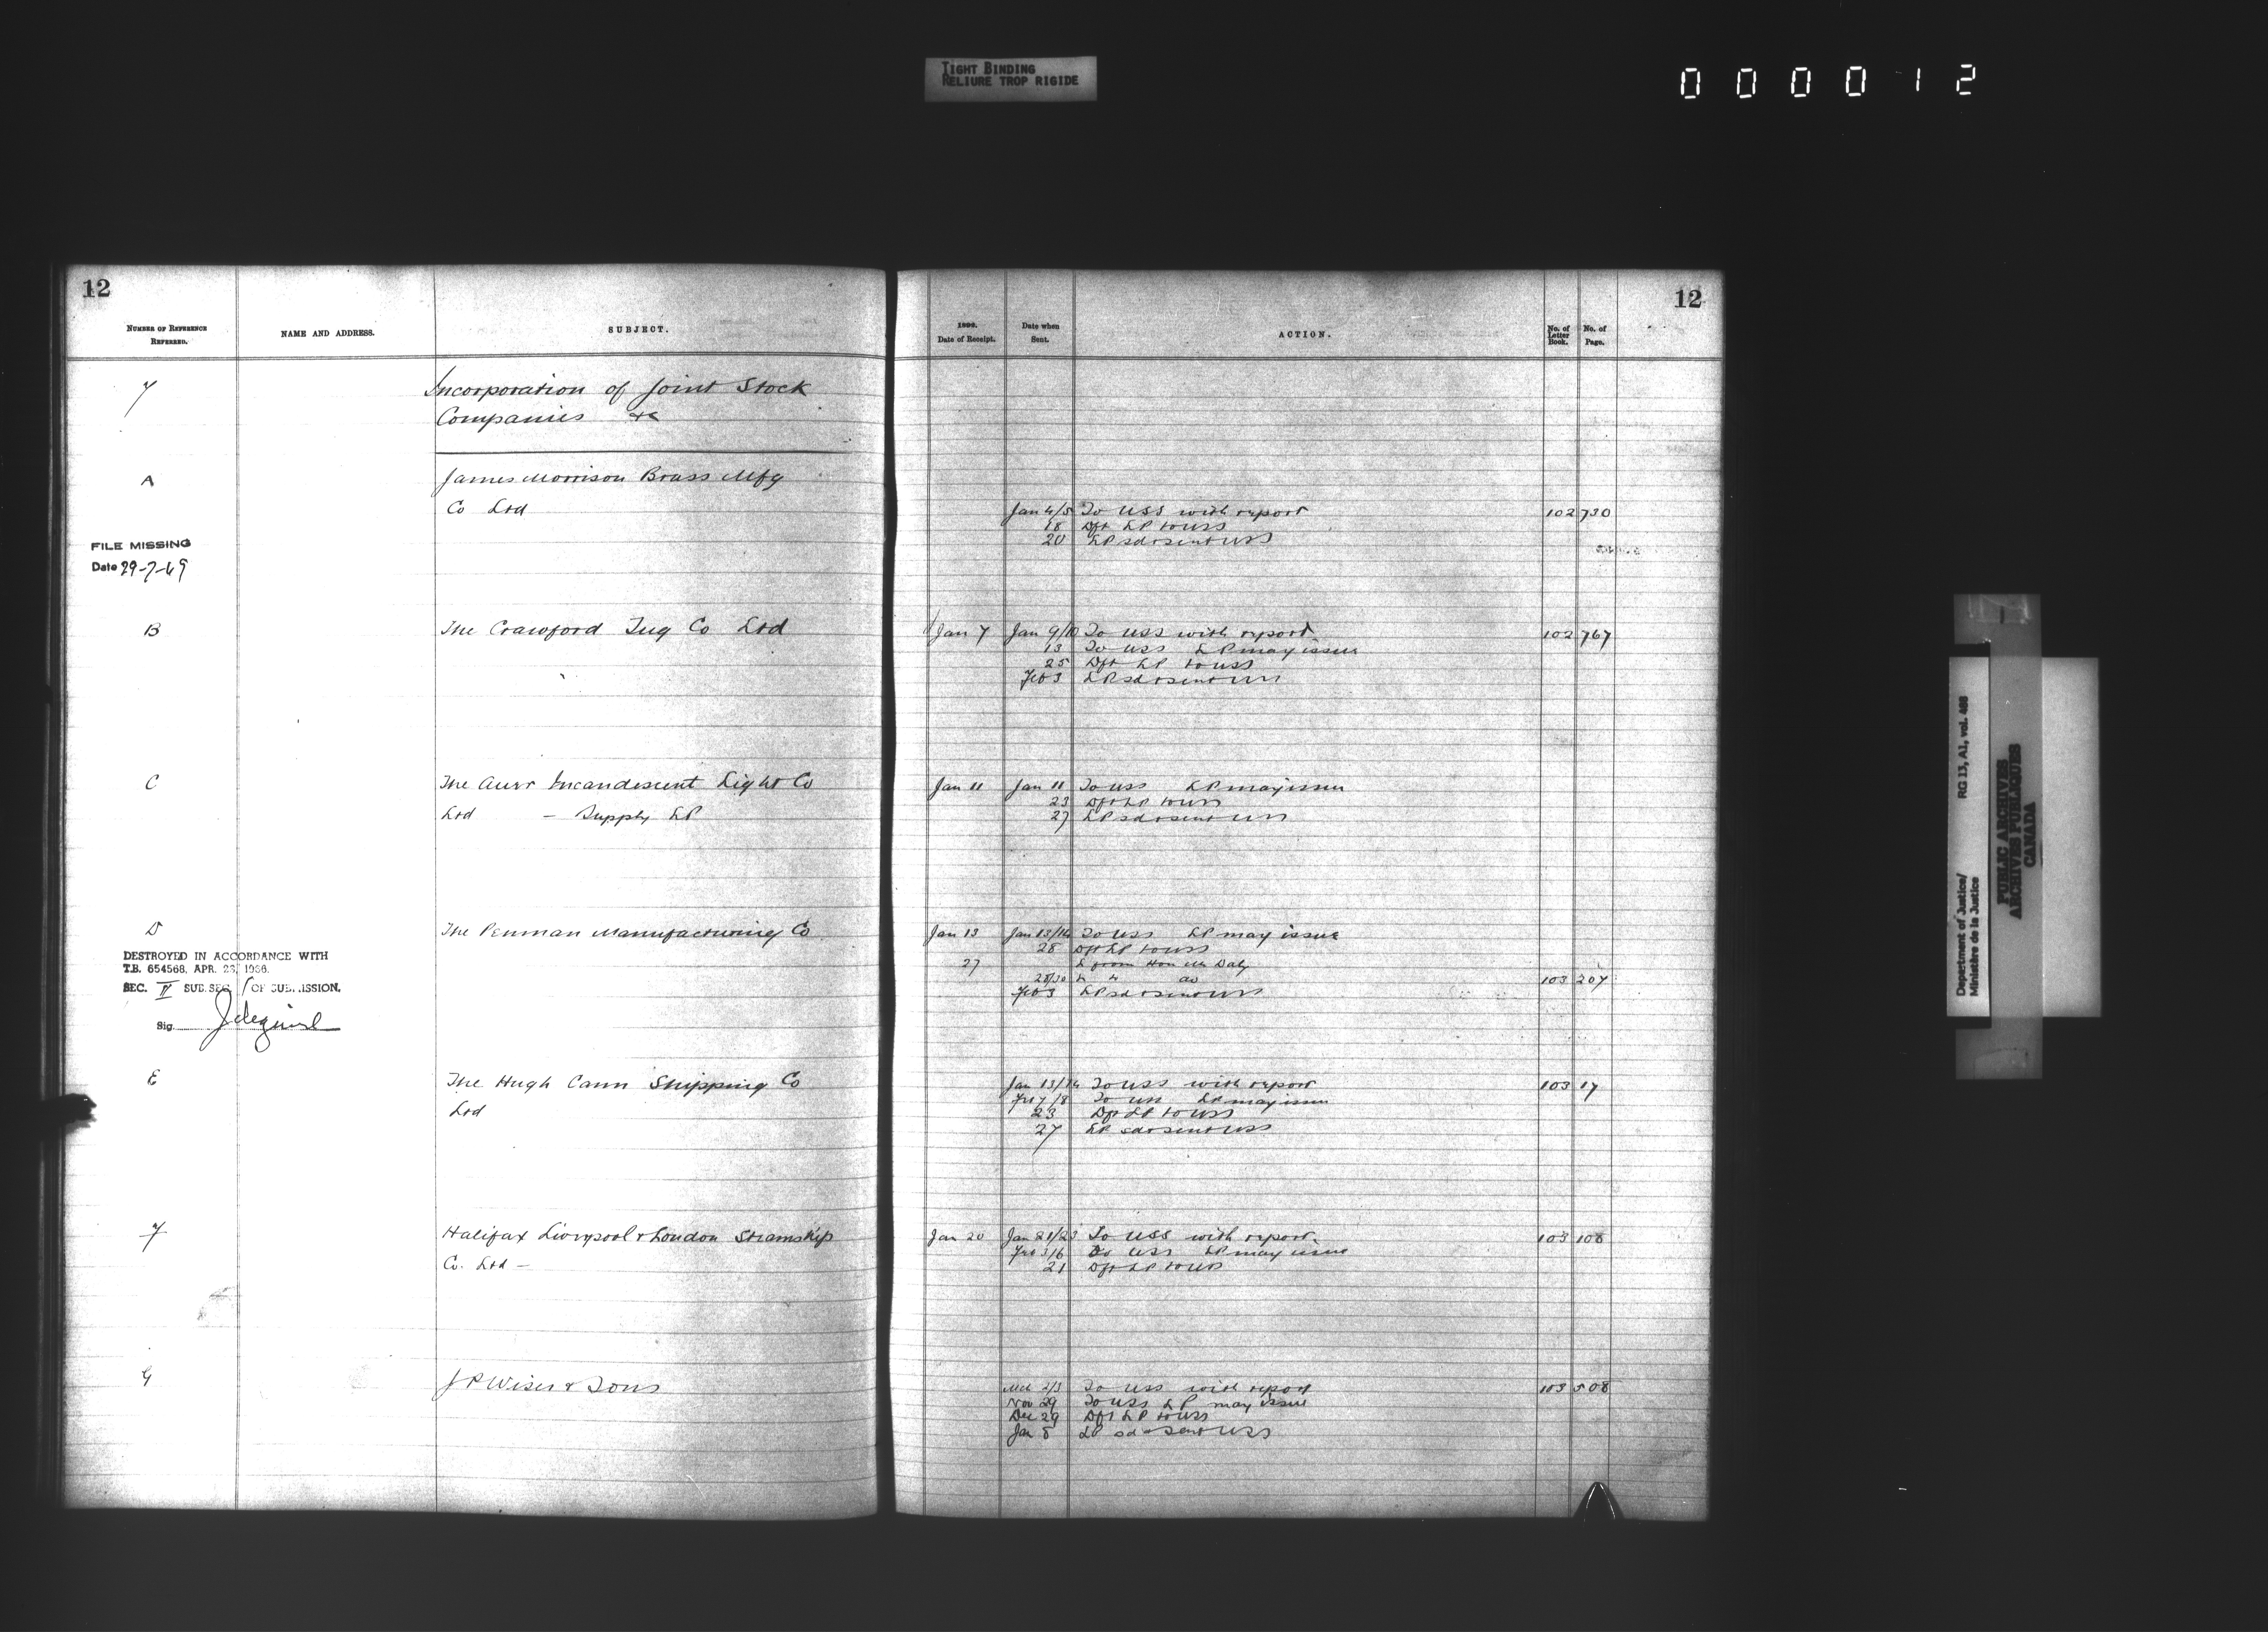 TIGHT BINDING
RELIURE TROP RIGIDE
000012
12
NUMBER OF REFERENCE REFERRED.
NAME AND ADDRESS.
SUBJECT.
7
Incorporation of Joint Stock
Companies &c
A
James Morrison Brass Mfg
Co Ltd
FILE MISSING
Date 29-7-69
B
The Crawford Tug Co Ltd
C
The Auer Incandescent Light Co
Ltd — Supply LP
D
The Penman Manufacturing Co
DESTROYED IN ACCORDANCE WITH
T.B. 654568, APR. 23, 1936.
SEC. II SUB. SEC. OF SUBMISSION.
Sig.
E
The Hugh Cann Shipping Co
Ltd
F
Halifax Liverpool & London Steamship
Co. Ltd —
G
J P Wiser & Sons
12
Date of Receipt.
Date when Sent.
ACTION.
No. of Letter Book.
No. of Page.
Jan 4/5 To USS with report 102 730
18 Dft LP to USS
20 LP sd & sent USS
Jan 7 Jan 9/10 To USS with report 102 767
13 To USS LP may issue
25 Dft LP to USS
Feb 3 LP sd & sent USS
Jan 11 Jan 11 To USS LP may issue
23 Dft LP to USS
27 LP sd & sent USS
Jan 13 Jan 13/14 To USS LP may issue
28 Dft LP to USS
27 L from Hon Mr Daly
28/30 103 207
Feb 3 LP sd & sent USS
Jan 13/14 To USS with report 103 17
Feb 7/8 To USS LP may issue
23 Dft LP to USS
27 LP sd & sent USS
Jan 20 Jan 21/23 To USS with report 103 108
Feb 3/6 To USS LP may issue
21 Dft LP to USS
Mch 2/3 To USS with report 103 508
Nov 29 To USS LP may issue
Dec 29 Dft LP to USS
Jan 8 LP sd & sent USS
Department of Justice/ RG 13, A1, vol. 488
Ministère de la Justice
PUBLIC ARCHIVES
ARCHIVES PUBLIQUES
CANADA